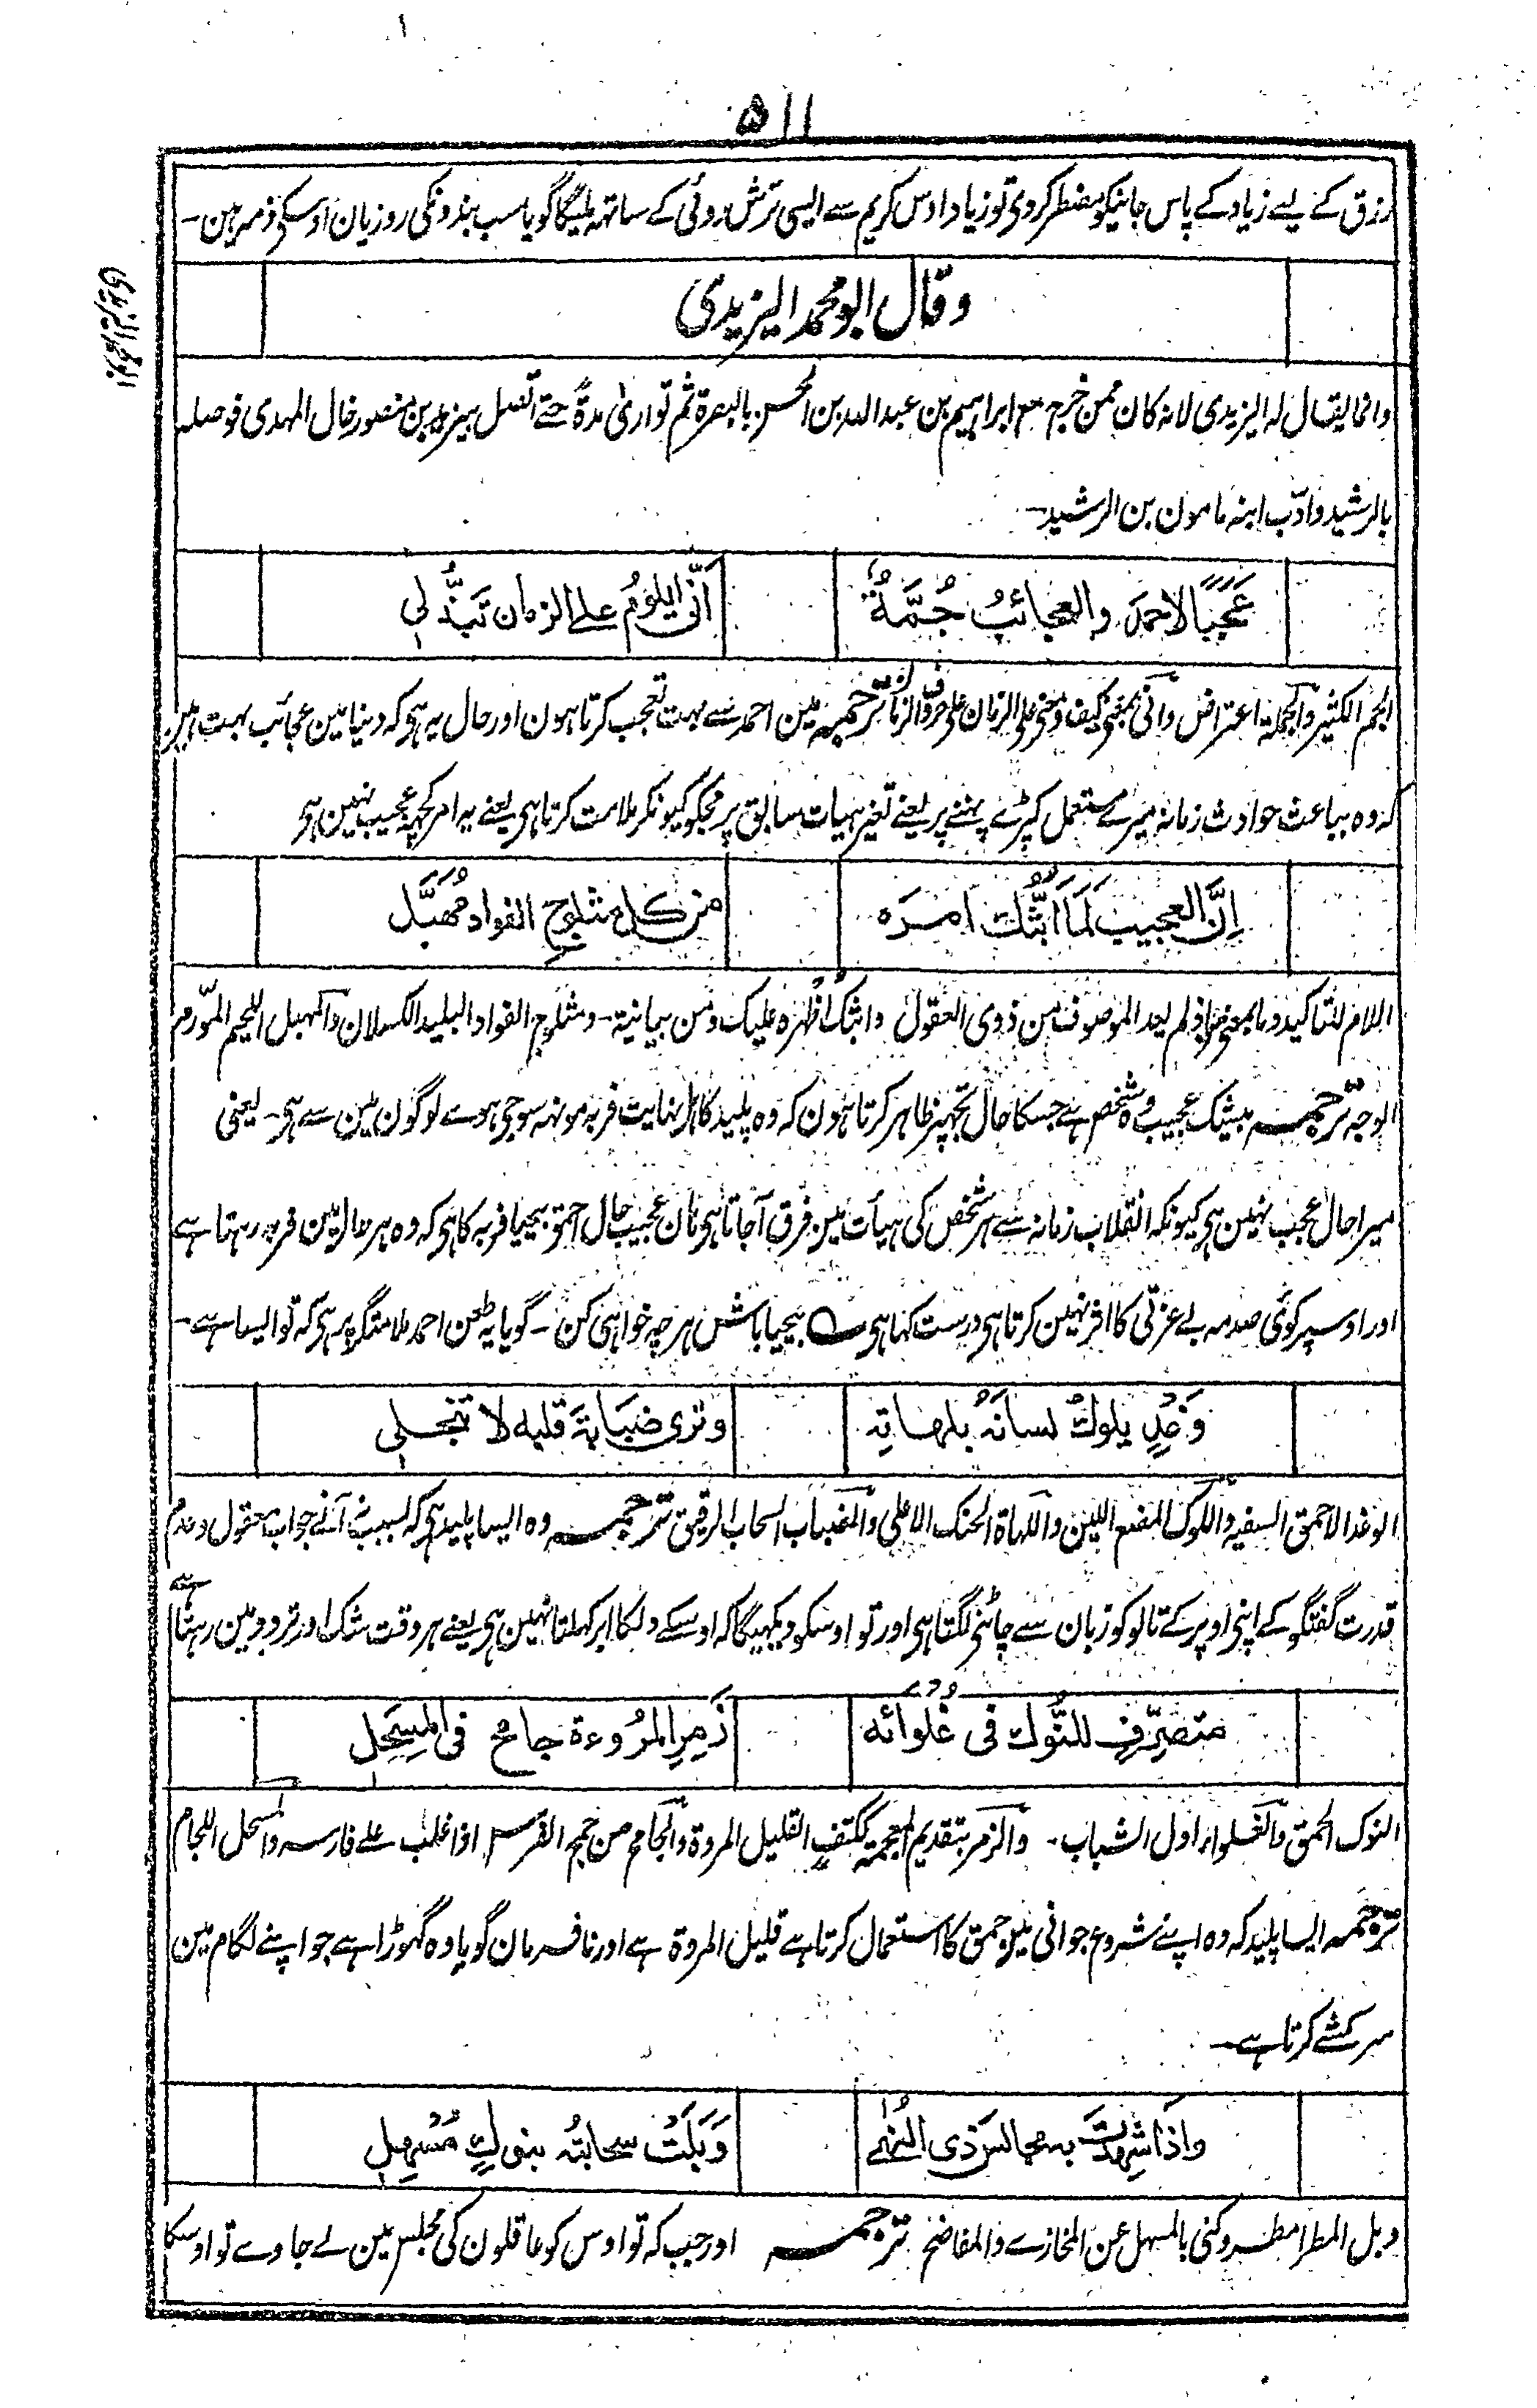 ۵۱۱
رزق کے لیے زیاد کے پاس جانیکو مضطر کردی تو زیاد اوس کریم سے ایسی ترش روئی کے ساتھہ ملیگا گویا سب بندونکی روزیان اوسکی ذمہ ہین۔
وقال ابو محمد الیزیدی
وانما یقال لہ الیزیدی لانہ کان ممن خرج مع ابراہیم بن عبد اللہ بن الحسن بالبصرة ثم تواریٰ مدةً حتے اتصل بیزید بن منصور خال المہدی فوصلہ
بالرشید وادّب ابنہ مامون بن الرشید۔
عَجَبًا لاحمدَ والعجائبُ جُمَّةٌ
أنّٰی یلومُ علے الزمان تبذُّلی
الجم الکثیر والجملة اعتراض وانّٰی بمعنی کیف ومعنی علی الزمان علی حروف الزمان ترجمہ مین احمد سے بہت تعجب کرتا ہون اور حال یہ ہی کہ دنیا مین عجائب بہت ہین
کہ وہ بباعث حوادث زمانہ میرے مستعمل کپڑے پہننے پر یعنے تغیر ہیات سابق پر مجکو کیونکر ملامت کرتا ہی یعنے یہ امر کچہہ عجیب نہین ہی
اِنَّ العجیبَ لَمَا اَبُثُّكَ امرَہ
من کل مثلوج الفواد مُهَبَّل
اللام للتاکید وما بمعنی من اذ لم یعد الموصوف من ذوی العقول وابثک اظہرہ علیک ومن بیانیة۔ ومثلوج الفواد البلید الکسلان والمہبل اللحیم المورّم
الوجہ ترجمہ بیشک عجیب وہ شخص ہے جسکا حال تجہپر ظاہر کرتا ہون کہ وہ پلید کاہل نہایت فربہ مونہہ سوجی ہوے لوگون مین سے ہی۔ یعنی
میرا حال عجب نہین ہی کیونکہ انقلاب زمانہ سے ہر شخص کی ہیأت مین فرق آجاتا ہی ہان عجیب حال احمق بیحیا فربہ کا ہی کہ وہ ہر حال مین فربہ رہتا ہے
اور اوسپر کوئی صدمہ بے عزتی کا اثر نہین کرتا ہی درست کہا ہی بیحیا باش ہر چہ خواہی کن۔ گویا یہ طعن احمد ملامتگر پر ہی کہ تو ایسا ہے۔
وَغدٍ یلوكُ لسانَہُ بلهاتِہ
وتری ضبابةَ قلبہ لا تنجلی
الوغد الاحمق السفیہ واللوک المضغ اللین واللہاة الحنک الاعلی والضباب السحاب الرقیق ترجمہ وہ ایسا پلید ہی کہ بسبب نہ آنے جواب معقول وعدم
قدرت گفتگو کے اپنی اوپر کے تالو کو زبان سے چاٹنی لگتا ہی اور تو اوسکو دیکہیگا کہ اوسکے دلکا ابر کہلتا نہین ہی یعنے ہر وقت شک اور تردد مین رہتا ہے
متصرِّفٍ للنُّوك فی غُلَوائہ
زَمِرِ المرُوءة جامحٍ فی المِسحَلِ
النوک الحمق والغلواء اول الشباب۔ والزمر بتقدیم المعجمة ککتفٍ القلیل المروة والجامح من جمح الفرس اذا غلب علے فارسہ والمسحل اللجام
ترجمہ ایسا پلید کہ وہ اپنے شروع جوانی مین حمق کا استعمال کرتا ہے قلیل المروة ہے اور نافرمان گویا وہ گہوڑا ہے جو اپنے لگام مین
سرکشے کرتا ہے۔
واذا شهدتَ بہ مجالسَ ذی النُّهٰے
وَبَلَتْ سحابتُہ بنوكٍ مُسْهِلِ
وبل المطر امطر وکنی بالمسہل عن المخازے والمفاضح ترجمہ اور جب کہ تو اوس کو عاقلون کی مجلس مین لے جاوے تو اوسکا